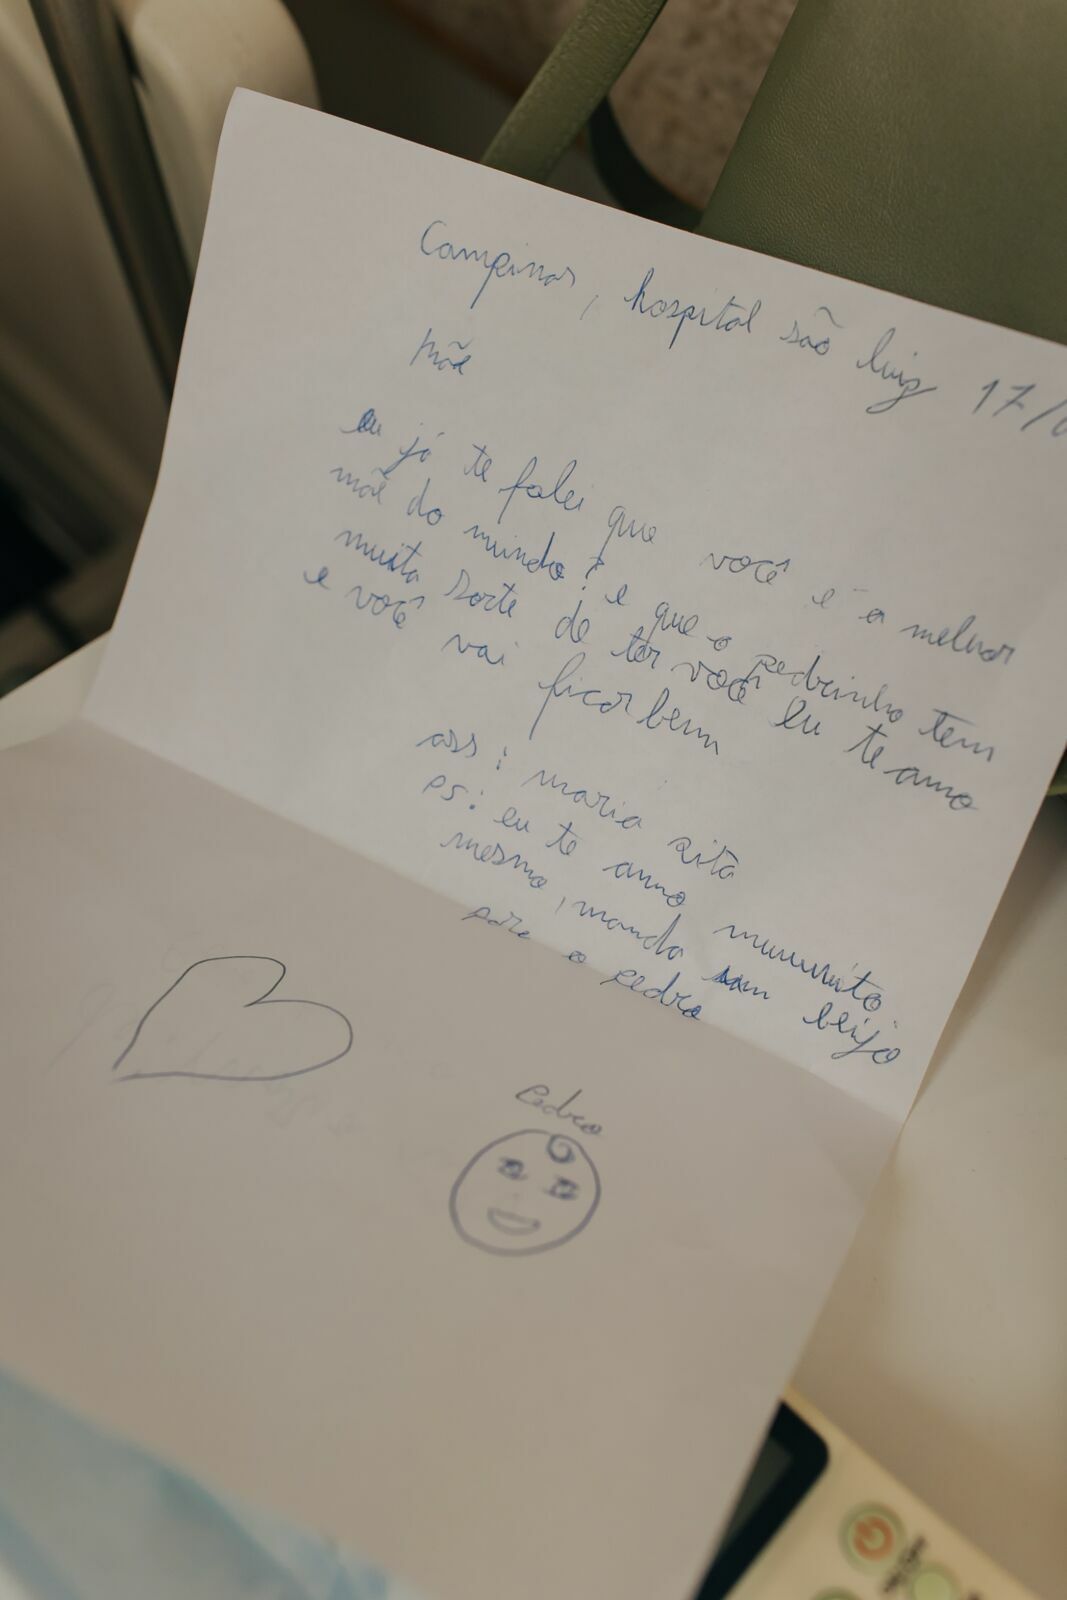 Campinas, hospital são luiz 17/0
Mãe
eu já te falei que você é a melhor
mãe do mundo? e que o pedrinho tem
muita sorte de ter você eu te amo
e você vai ficar bem
ass: maria rita
PS: eu te amo muuuuito
mesmo, manda um beijo
para o pedro
Pedro